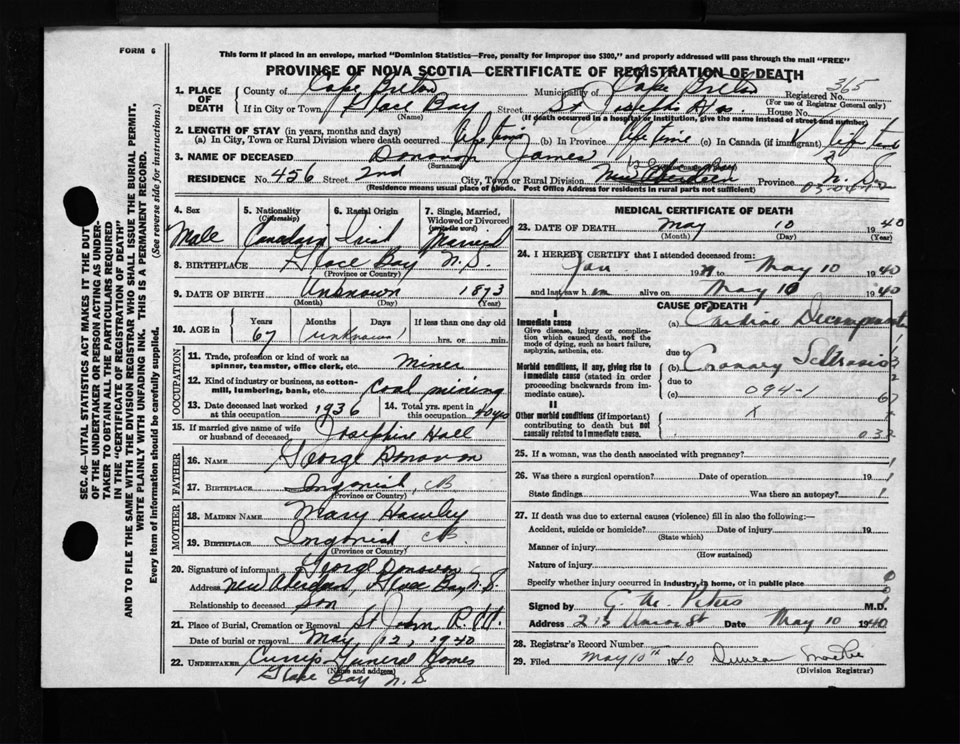 FORM 6
This form if placed in an envelope, marked "Dominion Statistics—Free, penalty for improper use $300," and properly addressed will pass through the mail "FREE"
PROVINCE OF NOVA SCOTIA—CERTIFICATE OF REGISTRATION OF DEATH
1. PLACE OF DEATH County of Cape Breton Municipality of Cape Breton Registered No. 365
(For use of Registrar General only)
If in City or Town Glace Bay Street St Joseph's Hos House No.
(Name) (If death occurred in a hospital or institution, give the name instead of street and number)
2. LENGTH OF STAY (in years, months and days)
(a) In City, Town or Rural Division where death occurred life time (b) In Province life time (c) In Canada (if immigrant) life time
3. NAME OF DECEASED Donovan James
(Surname)
RESIDENCE No. 456 Street 2nd City, Town or Rural Division New Aberdeen Province N. S.
(Residence means usual place of abode. Post Office Address for residents in rural parts not sufficient)
SEC. 46—VITAL STATISTICS ACT MAKES IT THE DUTY OF THE UNDERTAKER OR PERSON ACTING AS UNDERTAKER TO OBTAIN ALL THE PARTICULARS REQUIRED IN THE "CERTIFICATE OF REGISTRATION OF DEATH" AND TO FILE THE SAME WITH THE DIVISION REGISTRAR WHO SHALL ISSUE THE BURIAL PERMIT.
WRITE PLAINLY WITH UNFADING INK. THIS IS A PERMANENT RECORD.
Every item of Information should be carefully supplied. (See reverse side for instructions.)
4. Sex Male
5. Nationality (Citizenship) Canadian
6. Racial Origin Irish
7. Single, Married, Widowed or Divorced (write the word) Married
8. BIRTHPLACE Glace Bay N. S.
(Province or Country)
9. DATE OF BIRTH Unknown 1873
(Month) (Day) (Year)
10. AGE in Years 67 Months Days unknown If less than one day old hrs. or min.
OCCUPATION
11. Trade, profession or kind of work as spinner, teamster, office clerk, etc. Miner
12. Kind of industry or business, as cotton-mill, lumbering, bank, etc. Coal mining
13. Date deceased last worked at this occupation 1936
14. Total yrs. spent in this occupation 40
15. If married give name of wife or husband of deceased Josephine Hall
FATHER
16. NAME George Donovan
17. BIRTHPLACE Ingonish, CB
(Province or Country)
MOTHER
18. MAIDEN NAME Mary Hawley
19. BIRTHPLACE Ingonish CB
(Province or Country)
20. Signature of informant George Donovan
Address New Aberdeen, Glace Bay N. S
Relationship to deceased Son
21. Place of Burial, Cremation or Removal St John
Date of burial or removal May 12, 1940
22. UNDERTAKER Curry's Funeral Homes
(Name and address)
Glace Bay N. S
MEDICAL CERTIFICATE OF DEATH
23. DATE OF DEATH May 10 1940
(Month) (Day) (Year)
24. I HEREBY CERTIFY that I attended deceased from:
Jan 19 to May 10 1940
and last saw him alive on May 10 1940
CAUSE OF DEATH
I
Immediate cause
Give disease, injury or complication which caused death, not the mode of dying, such as heart failure, asphyxia, asthenia, etc.
(a) Cardiac
due to
Morbid conditions, if any, giving rise to immediate cause (stated in order proceeding backwards from immediate cause).
(b) Coronary
due to
(c) 094-1
II
Other morbid conditions (if important) contributing to death but not causally related to immediate cause.
x
25. If a woman, was the death associated with pregnancy?
26. Was there a surgical operation? Date of operation 19
State findings Was there an autopsy?
27. If death was due to external causes (violence) fill in also the following:—
Accident, suicide or homicide? Date of injury 19
(State which)
Manner of injury
(How sustained)
Nature of injury
Specify whether injury occurred in industry, in home, or in public place
Signed by G. M. Peters M.D.
Address Date May 10 1940
28. Registrar's Record Number
29. Filed May 10th 1940 Duncan
(Division Registrar)